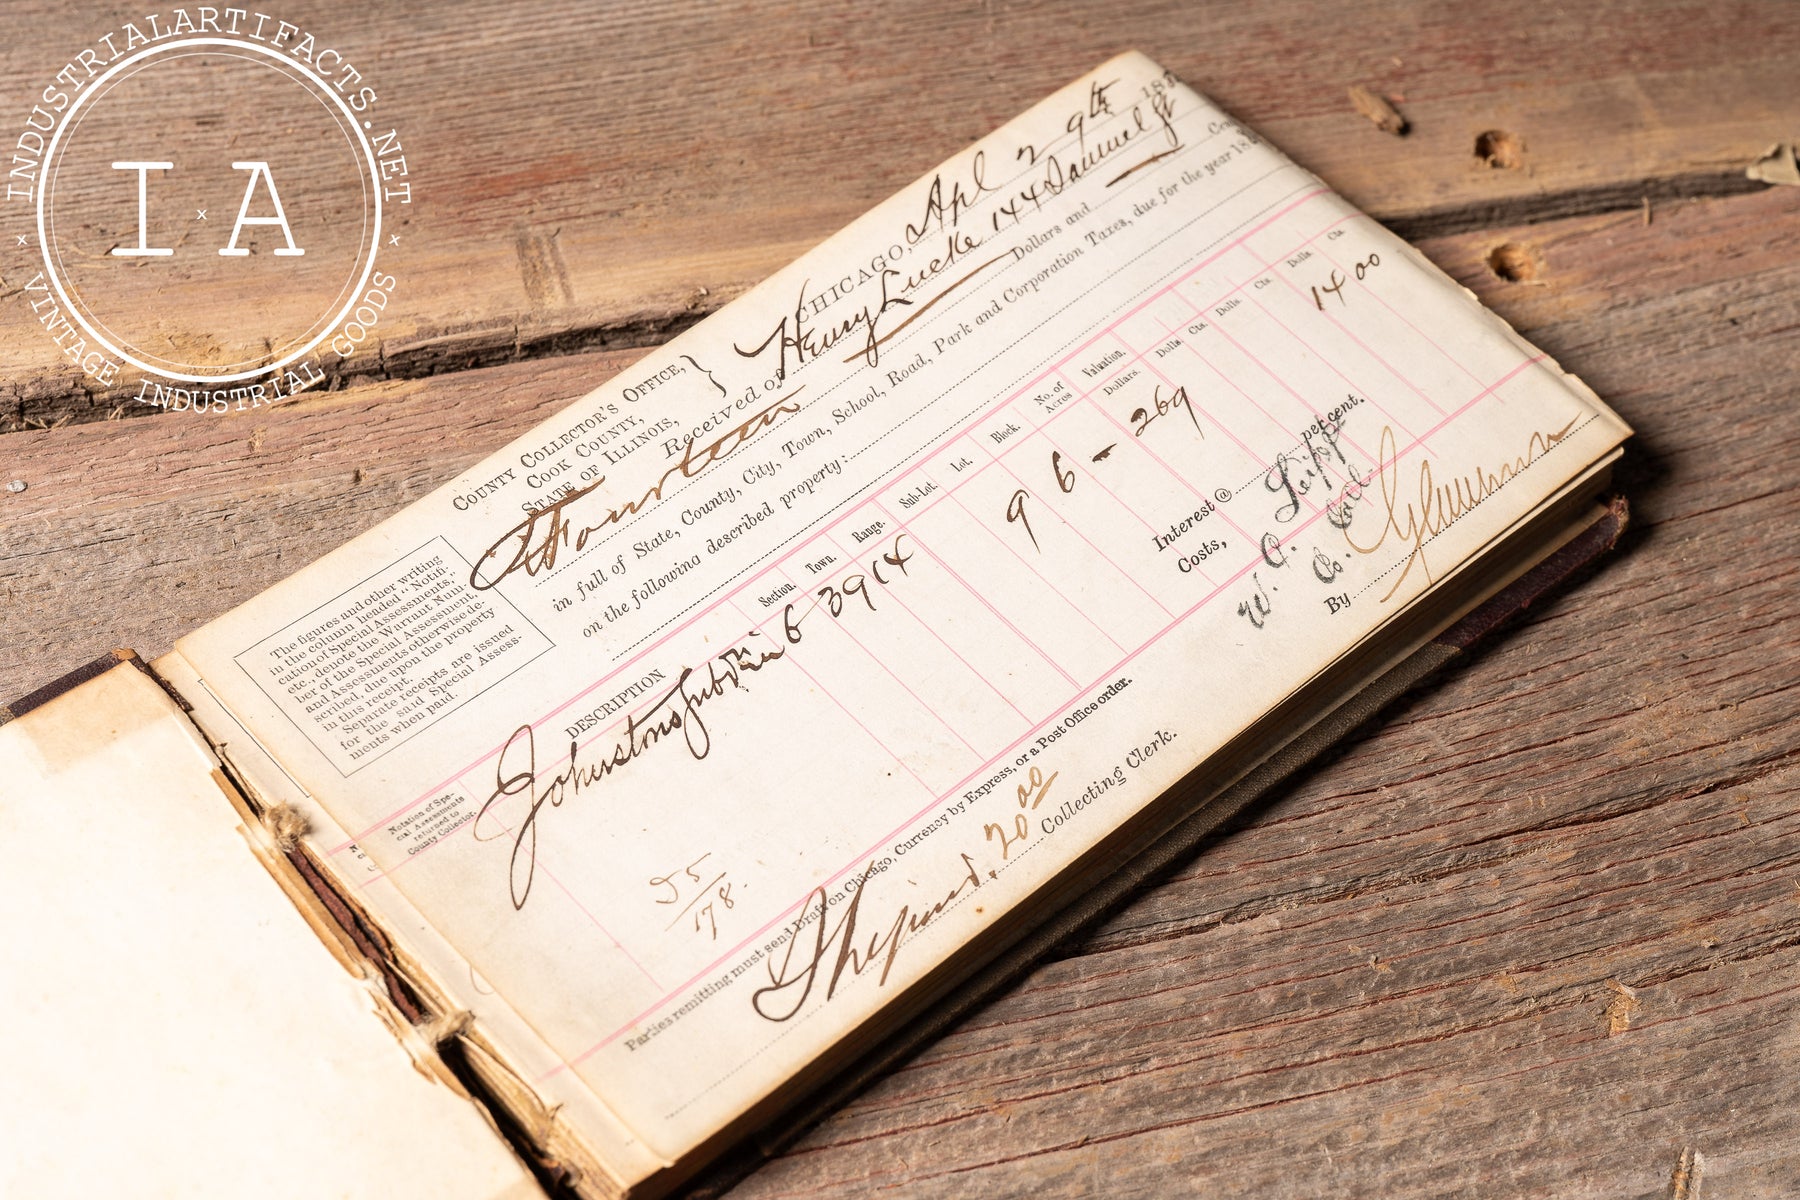 INDUSTRIALARTIFACTS.NET
I x A
x VINTAGE INDUSTRIAL GOODS x
COUNTY COLLECTOR'S OFFICE,
COOK COUNTY,
STATE OF ILLINOIS,
CHICAGO, Apl 29th 18
Received of Henry Lueke 144 Samuel St
Fourteen Dollars and Cen
in full of State, County, City, Town, School, Road, Park and Corporation Taxes, due for the year 18
on the following described property:
The figures and other writing
in the column headed "Notifi-
cation of Special Assessments,"
etc., denote the Warrant Num-
ber of the Special Assessment,
or Assessments otherwise de-
scribed, due upon the property
in this receipt.
Separate receipts are issued
for the said Special Assess-
ments when paid.
Notation of Spe-
cial Assessments
returned to
County Collector.
DESCRIPTION Section. Town. Range. Sub-Lot. Lot. Block. No. of Acres Valuation. Dollars. Dolls. Cts. Dolls. Cts. Dolls. Cts.
Johnstons Subdiv in 6 39 14 9 6 - 269 14 00
Interest @ per cent.
Costs,
75/178.
W. C.
Co. Coll
By
Parties remitting must send Draft on Chicago, Currency by Express, or a Post Office order.
20 00 Collecting Clerk.